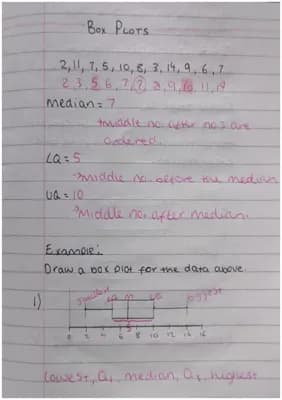 Box PLOTS
2, 11, 7, 5, 10, 8, 3, 14, 9, 6, 7
2 3 5 6 7 7 8 9 10 11 14
median = 7
middle no. after no.s are
ordered.
LQ = 5
→middle no. before the median
UQ = 10
→middle no. after median.
Example:
Draw a box plot for the data above.
1)
smallest LQ m UQ biggest
0 2 4 6 8 10 12 14 16
Lowest, Q₁, median, Q₃, highest